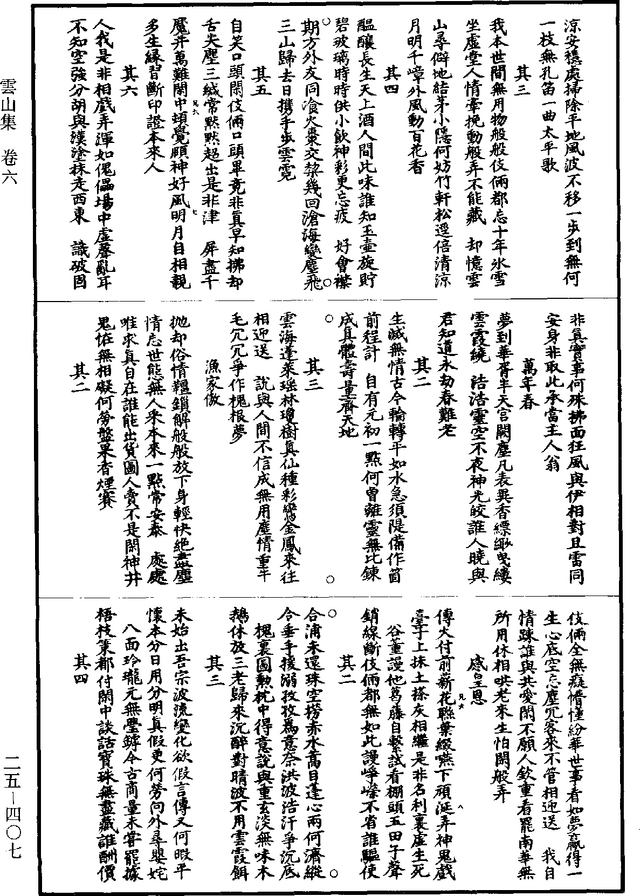 雲山集　卷六
二五—四〇七
涼安穩處掃除平地風波不移一步到無何
一枝無孔笛一曲太平歌
其三
我本世間無用物般般伎倆都忘十年氷雪
坐虛堂人情牽挽動般弄不能藏　却憶雲
山尋僻地結茅小隱何妨竹軒松逕倍清涼
月明千嶂外風動百花香
其四
醞釀長生天上酒人間此味誰知玉壺旋貯
碧玻璃時時供小飲神彩更忘疲　好會襟
期方外友同飡火棗交棃幾回滄海變塵飛
三山歸去日攜手步雲霓
其五
自笑口頭閑伎倆口頭畢竟非真早知拂却
舌尖塵三緘常默默超出是非津　屏盡千
魔并萬難閑中頓覺頤神好風明月自相親
多生緣習斷印證本來人
其六
人我是非相戲弄渾如傀儡場中虛聲亂耳
不知空強分胡與漢塗抹走西東　識破固
非真實事何殊拂面狂風與伊相對且雷同
安身非取此承當主人翁
萬年春
夢到華胥半天宮闕塵凡表異香縹緲曳縷
雲霞繞　浩浩靈空不夜神光皎誰人曉與
君知道永劫春難老
其二
生滅無情古今輪轉平如水急須隄備作箇
前程計　自有元初一點何曾離靈無比鍊
成真體壽量齊天地
其三
雲海蓬萊瑤林瓊樹真仙種彩鸞金鳳來往
相迎送　說與人間不信成無用塵情重牛
毛冗冗爭作槐根夢
漁家傲
拋却俗情韁鎖解般般放下身輕快絕盡塵
情忘世態無人采本來一點常安泰　處處
唯求真自在誰能出貨圖人賣不是閑神并
鬼恠無相礙何勞盤果香煙賽
其二
伎倆全無癡懵懂紛華世事看如夢贏得一
生心底空忘塵冗客來不管相迎送　我自
情踈誰與共愛閑不願人欽重看罷南華無
所用休相哄老來生怕閑般弄
感皇恩
傳火付前薪花聯葉綴燕下頑涎弄神鬼戲
臺子上抹土搽灰相繼是非名利裏虛生死
谷董謾他葛藤自繫試看棚頭五田子聲
銷線斷伎倆都無如此謾崢嶸不省誰驅使
其二
合浦未還珠空撈赤水蒿目蓬心兩何濟縱
合垂手援溺孜孜為意奈洪波浩汗爭沉底
槐裏圖勳枕中得意說與重玄淡無味木
鵝休放三老歸來沉醉對晴波不用雲霞餌
其三
未始出吾宗波流變化欲假言傳又何暇平
懷本分日用分明真假更何勞向外尋嬰姹
八面玲瓏元無璺罅今古商量未嘗罷據
梧枝策都付閑中談話寶珠無盡藏誰酬價
其四